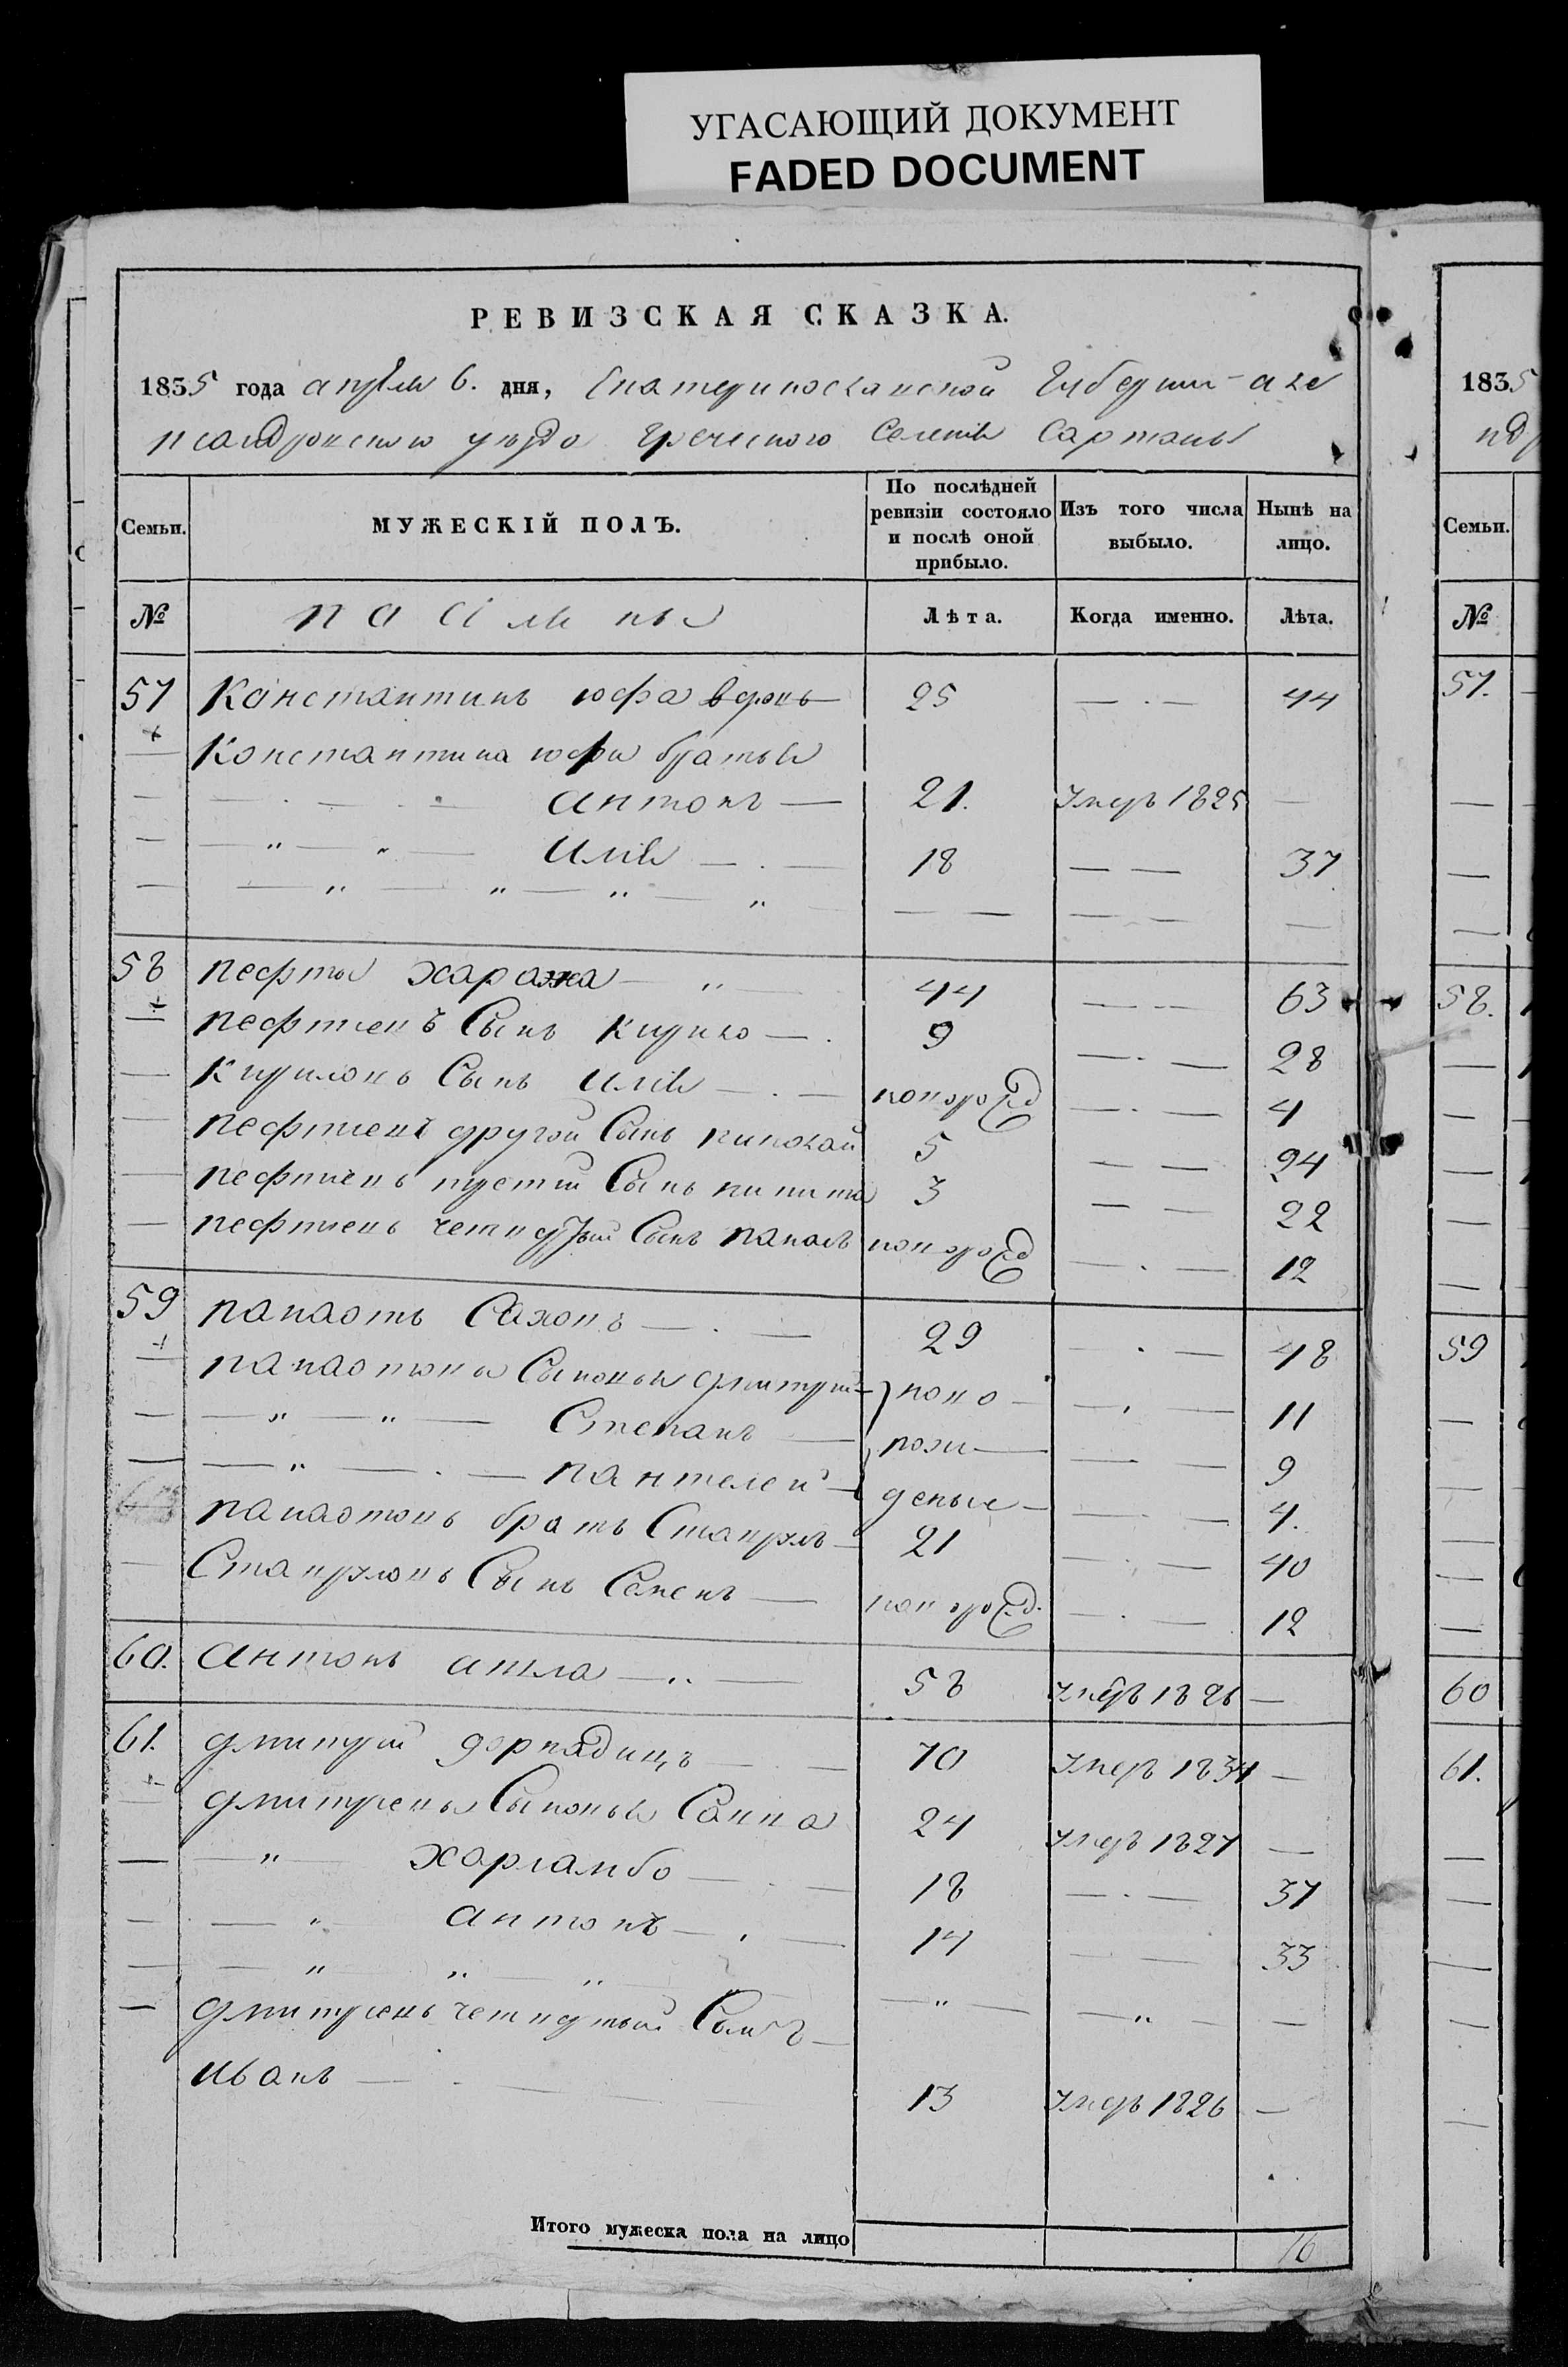 УГАСАЮЩИЙ ДОКУМЕНТ
FADED DOCUMENT
РЕВИЗСКАЯ СКАЗКА.
1835 года апреля 6. дня, Екатеринославской Губернии Але
ксандровского уезда Греческого Селенія Сартаны
Семьи.
МУЖЕСКІЙ ПОЛЪ.
По послѣдней ревизіи состояло и послѣ оной прибыло.
Изъ того числа выбыло.
Нынѣ на лицо.
№
Лѣта.
Когда именно.
Лѣта.
57 Константинъ юфа 25 44
Константина юфы братья
антонъ 21. умеръ 1825
Илія 18 37
58 Пефты 44 63
Пефтіевъ Сынъ Кирило 9 28
Кириловъ Сынъ Илія новорожд 4
Пефтіевъ другой Сынъ николай 5 24
Пефтіевъ третій Сынъ никита 3 22
Пефтіевъ четвертый Сынъ новорожд 12
59 Панаотъ Сахонъ 29 48
Панаотовы Сыновья дмитрій ново 11
Степанъ рож 9
Пантелей деные 4.
Панаотовъ братъ Ставрулъ 21 40
Ставруловъ Сынъ новорожд. 12
60. Антонъ 58 умеръ 1826
61. дмитрій 70 умеръ 1834
дмитріевы Сыновья Савва 24 умеръ 1827
Харламбо 18 37
антонъ 14 33
дмитріевъ четвертый Сынъ
Иванъ 13 умеръ 1826
Итого мужеска пола на лицо 16
1835
Семьи.
№
57.
58.
59
60
61.